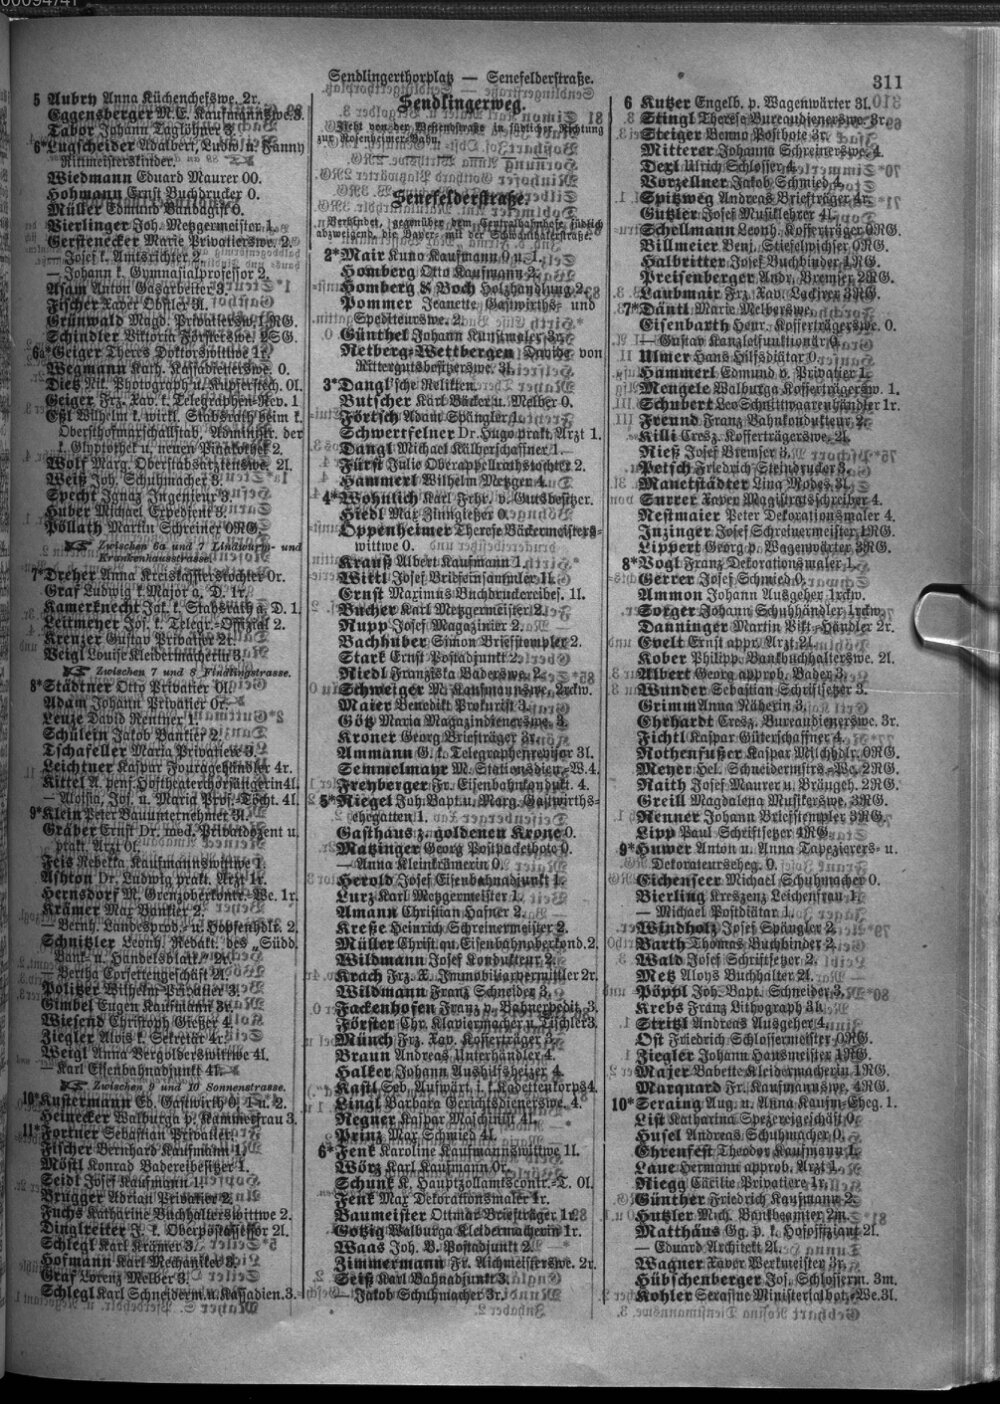 Sendlingerthorplatz — Senefelderstraße.
311
5 Aubry Anna Küchenchefswe. 2r.
Eggensberger M. E. Kaufmannswe. 3.
Tabor Johann Taglöhner 3.
6*Lugscheider Adalbert, Ludw. u. Fanny
Rittmeisterskinder.
Wiedmann Eduard Maurer 00.
Hohmann Ernst Buchdrucker 0.
Müller Edmund Bandagist 0.
Vierlinger Joh. Metzgermeister 1.
Gerstenecker Marie Privatierswe. 2.
— Josef k. Amtsrichter 2.
— Johann k. Gymnasialprofessor 2.
Asam Anton Gasarbeiter 3.
Fischer Xaver Obstler R.
Grünwald Magd. Privatiersw. 1RG.
Schindler Viktoria Förterswe. 2SG.
6a*Geiger Theres Doktorswittwe 1r.
Wegmann Kath. Kassadienerswe. 0.
Dietz Nik. Photograph u. Kupferstech. 0l.
Geiger Frz. Xav. k. Telegraphen-Rev. 1
Eßl Wilhelm k. wirkl. Stabsrath beim k.
Obersthofmarschallstab, Administr. der
k. Glyptothek u. neuen Pinakothek 2.
Wolf Marg. Oberstabsarztenswe. 2l.
Weiß Joh. Schuhmacher 3.
Specht Ignaz Ingenieur 3.
Huber Michael Expedient 3.
Pöllath Martin Schreiner 0RG.
☞ Zwischen 6a und 7 Lindwurm- und
Krankenhausstrasse.
7*Dreher Anna Kreiskassierstochter 0r.
Graf Ludwig k. Major a. D. 1r.
Kamerknecht Jak. k. Stabsrath a. D. 1.
Leitmeyer Jos. k. Telegr.-Offizial 2.
Krenzer Gustav Privatier 2l.
Veigl Louise Kleidermacherin 3.
☞ Zwischen 7 und 8 Findlingstrasse.
8*Städtner Otto Privatier 0l.
Adam Johann Privatier 0r.
Leuze David Rentner 1.
Schülein Jakob Bankier 2.
Tschafeller Maria Privatiere 3.
Leichtner Kaspar Fouragehändler 4r.
Kittel A. pens. Hoftheaterchorsängerin 4l.
— Aloisia, Jos. u. Maria Prof.-Töcht. 4l.
9*Klein Peter Bauunternehmer 3l.
Gräber Ernst Dr. med. Privatdozent u.
prakt. Arzt 0l.
Feis Rebekka Kaufmannswittwe 1.
Ashton Dr. Ludwig prakt. Arzt 1r.
Hernsdorf M. Grenzoberkontr.-We. 1r.
Krämer Max Bankier 2.
— Bernh. Landesprod.- u. Hopfenhdlr. 2.
Schnitzler Leonh. Redakt. des „Südd.
Bank- u. Handelsblatt“ 2r.
— Bertha Corsettengeschäft 2l.
Politzer Wilhelm Privatier 3.
Gimbel Eugen Kaufmann 3r.
Wiesend Christoph Gießer 4.
Ziegler Alois k. Sekretär 4r.
Weigl Anna Vergolderswittwe 4l.
— Karl Eisenbahnadjunkt 4l.
☞ Zwischen 9 und 10 Sonnenstrasse.
10*Kustermann Ed. Gastwirth 0, 1 u. 2.
Heinecker Walburga p. Kammerfrau 3.
11*Fortner Sebastian Privatier.
Fischer Bernhard Kaufmann 1.
Möstl Konrad Badereibesitzer 1.
Seidl Josef Kaufmann 1.
Brugger Adrian Privatier 2.
Fuchs Katharine Buchhalterswittwe 2.
Dinglreiter J. k. Oberpostassessor 2l.
Schlegl Karl Krämer 3.
Hofmann Karl Mechaniker 3.
Graf Lorenz Melber 3.
Schlegl Karl Schneiderm. u. Kassadien. 3.
Sendlingerweg.
Jetzt von der Westendstraße in südlicher Richtung
zur Rosenheimer-Bahn.
Senefelderstraße.
Verbindet, gegenüber dem Centralbahnhofe südlich
abzweigend, die Bayer- mit der Schwanthalerstraße.
2*Mair Kuno Kaufmann 0 u. 1.
Homberg Otto Kaufmann 2.
Homberg & Boch Holzhandlung 2.
Pommer Jeanette Gastwirths- und
Spediteurswe. 2.
Günthel Johann Kunstmaler 3r.
Retberg-Wettbergen Davide von
Rittergutsbesitzerswe. 3l.
3*Dangl'sche Relikten.
Butscher Karl Bäcker u. Melber 0.
Förtsch Adam Spängler 1.
Schwertfelner Dr. Hugo prakt. Arzt 1.
Dangl Michael Kälberschaffner 1.
Fürst Julie Oberappellrathstochter 2.
Hammerl Wilhelm Metzger 4.
4*Wöhnlich Karl Frhr. v. Gutsbesitzer.
Hiedl Max Zinngießer 0.
Oppenheimer Therese Bäckermeisters-
wittwe 0.
Krauß Albert Kaufmann 1.
Wittl Josef Briefeinsammler 1l.
Ernst Maximus Buchdruckereibes. 1l.
Bucher Karl Metzgermeister 2.
Rupp Josef Magazinier 2.
Bachhuber Simon Briefstempler 2.
Stark Ernst Postadjunkt 2.
Riedl Franziska Baderswe. 2.
Schweiger M. Kaufmannswe. 2rckw.
Maier Benedikt Prokurist 3.
Götz Maria Magazindienerswe. 3.
Kroner Georg Briefträger 3r.
Ammann G. k. Telegraphenrevisor 3l.
Semmelmayr M. Stationsdien.-W. 4.
Freyberger Fr. Eisenbahnkondukt. 4.
5*Riegel Joh. Bapt. u. Marg. Gastwirths-
ehegatten 1.
Gasthaus z. goldenen Krone 0.
Matzinger Georg Postpacketbote 0.
— Anna Kleinkrämerin 0.
Herold Josef Eisenbahnadjunkt 1.
Lurz Karl Metzgermeister 1.
Amann Christian Hafner 2.
Kreße Heinrich Schreinermeister 2.
Müller Christ. qu. Eisenbahnoberkond. 2.
Wildmann Josef Kondukteur 2.
Krach Frz. X. Immobilienvermittler 2r.
Wildmann Franz Schneider 3.
Fackenhofen Franz v. Bahnexpedit. 3.
Förster Chr. Klaviermacher u. Tischler 3.
Münch Frz. Xav. Kofferträger 3.
Braun Andreas Unterhändler 4.
Halker Johann Aushilfsheizer 4.
Kastl Seb. Aufwärt. i. k. Kadettenkorps 4.
Lingl Barbara Gerichtsdienerswe. 4.
Regner Kaspar Maschinist 4l.
Prinz Max Schmied 4l.
6*Fenk Karoline Kaufmannswittwe 1l.
Wörz Karl Kaufmann 0r.
Schunk K. Hauptzollamtscontr.-T. 0l.
Fenk Max Dekorationsmaler 1r.
Baumeister Ottmar Briefträger 1r.
Gotzig Walburga Kleidermacherin 1r.
Waas Joh. B. Postadjunkt 2.
Zimmermann Fr. Aichmeisterswe. 2r.
Seiß Karl Bahnadjunkt 3.
— Jakob Schuhmacher 3r.
6 Kutzer Engelb. p. Wagenwärter 3l.
Stingl Therese Bureaudienerswe. 3r.
Steiger Benno Postbote 3r.
Mitterer Johanna Schreinerswe. 4.
Dexl Ulrich Schlosser 4.
Vorzellner Jakob Schmied 4.
Spitzweg Andreas Briefträger 4r.
Gutzler Josef Musiklehrer 4l.
Schellmann Leonh. Kofferträger 0RG.
Billmeier Benj. Stiefelwichser 0RG.
Halbritter Josef Buchbinder 1RG.
Preisenberger Andr. Bremser 2RG.
Laubmair Frz. Xav. Lackirer 3RG.
7*Däntl Marie Melberswe.
Eisenbarth Henr. Kofferträgerswe. 0.
— Gustav Kanzleifunktionär 0.
Ulmer Hans Hilfsdiätar 0.
Hammerl Edmund v. Privatier 1.
Mengele Walburga Kofferträgersw. 1.
Schubert Leo Schnittwaarenhändler 1r.
Freund Franz Bahnkondukteur 2.
Kili Cresz. Kofferträgerswe. 2l.
Rieß Josef Bremser 3.
Petsch Friedrich Steindrucker 3.
Manetstädter Lina Modes 3l.
Surrer Xaver Magistratsschreiber 4.
Nestmaier Peter Dekorationsmaler 4.
Inzinger Josef Schreinermeister 1RG.
Lippert Georg p. Wagenwärter 3RG.
8*Vogl Franz Dekorationsmaler 1.
Gerrer Josef Schmied 0.
Ammon Johann Ausgeher 1rckw.
Sorger Johann Schuhhändler 1rckw.
Danninger Martin Vikt.-Händler 2r.
Evelt Ernst appr. Arzt 2l.
Kober Philipp. Bankbuchhalterswe. 2l.
Albert Georg approb. Bader 3.
Wunder Sebastian Schriftsetzer 3.
Grimm Anna Näherin 3.
Ehrhardt Cresz. Bureaudienerswe. 3r.
Fichtl Kaspar Güterschaffner 4.
Rothenfußer Kaspar Milchhdlr. 0RG.
Meyer Hel. Schneidermstrs.-We. 2RG.
Raith Josef Maurer u. Bräugeh. 2RG.
Greill Magdalena Musikerswe. 3RG.
Renner Johann Briefstempler 3RG.
Lipp Paul Schriftsetzer 4RG.
9*Huwer Anton u. Anna Tapezierers- u.
Dekorateurseheg. 0.
Eichenseer Michael Schuhmacher 0.
Vierling Kreszenz Leichenfrau 1.
— Michael Postdiätar 1.
Windholz Josef Spängler 2.
Barth Thomas Buchbinder 2.
Wald Josef Schriftsetzer 2.
Metz Aloys Buchhalter 2l.
Pöppl Joh. Bapt. Schneider 3.
Krebs Franz Lithograph 3l.
Stritzl Andreas Ausgeher 4.
Ost Friedrich Schlossermeister 0RG.
Ziegler Johann Hausmeister 1RG.
Majer Babette Kleidermacherin 1RG.
Marquard Fr. Kaufmannswe. 4RG.
10*Seraing Aug. u. Anna Kaufm.-Eheg. 1.
List Katharina Spezereigeschäft 0.
Husel Andreas Schuhmacher 0.
Ehrenfest Theodor Kaufmann 1.
Laue Hermann approb. Arzt 1.
Riegg Cäcilie Privatiere 1r.
Günther Friedrich Kaufmann 2.
Hutzler Mich. Bankbeamter 2m.
Matthäus Gg. p. k. Hofoffiziant 2l.
— Eduard Architekt 2l.
Wagner Xaver Werkmeister 3r.
Hübschenberger Jos. Schlosserm. 3m.
Kohler Serafine Ministerialbot.-We. 3l.